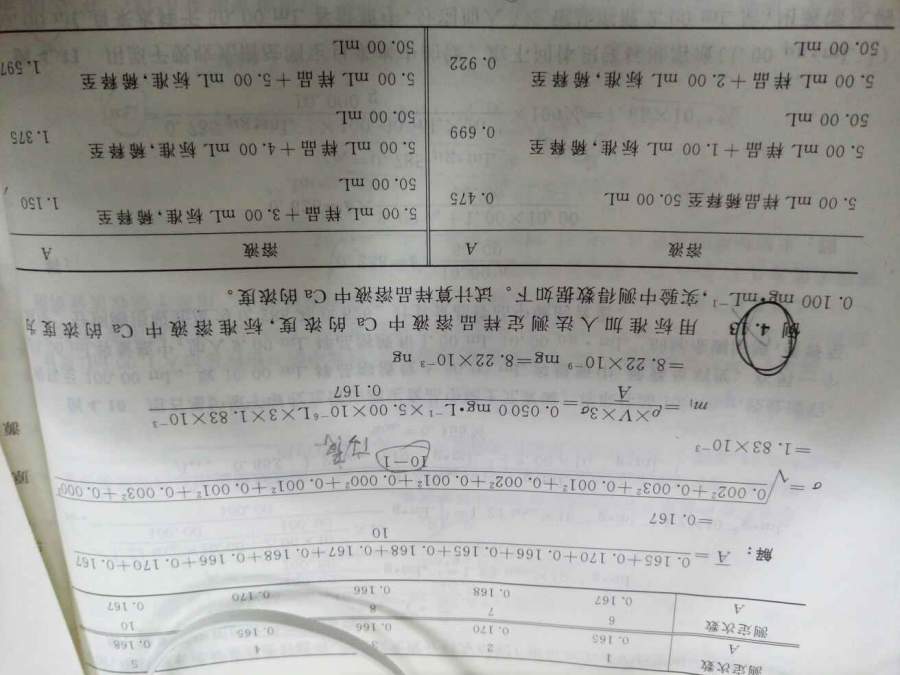 测定次数 1 2 3 4 5
A 0.165 0.170 0.166 0.165 0.168
测定次数 6 7 8 10
A 0.167 0.168 0.166 0.170 0.167
解：A̅=(0.165+0.170+0.166+0.165+0.168+0.167+0.168+0.166+0.170+0.167)/10
=0.167
σ=√((0.002²+0.003²+0.001²+0.002²+0.001²+0.000²+0.001²+0.001²+0.003²+0.000²)/(10−1))
=1.83×10⁻³
m₁=(ρ×V×3σ)/A̅=(0.0500 mg·L⁻¹×5.00×10⁻⁶L×3×1.83×10⁻³)/0.167
=8.22×10⁻⁹ mg=8.22×10⁻³ ng
例 4.13 用标准加入法测定样品溶液中 Ca 的浓度，标准溶液中 Ca 的浓度为
0.100 mg·mL⁻¹，实验中测得数据如下。试计算样品溶液中 Ca 的浓度。
溶液 A 溶液 A
5.00 mL 样品稀释至 50.00 mL 0.475 5.00 mL 样品+3.00 mL 标准，稀释至 50.00 mL 1.150
5.00 mL 样品+1.00 mL 标准，稀释至 50.00 mL 0.699 5.00 mL 样品+4.00 mL 标准，稀释至 50.00 mL 1.375
5.00 mL 样品+2.00 mL 标准，稀释至 50.00 mL 0.922 5.00 mL 样品+5.00 mL 标准，稀释至 50.00 mL 1.597
原
源